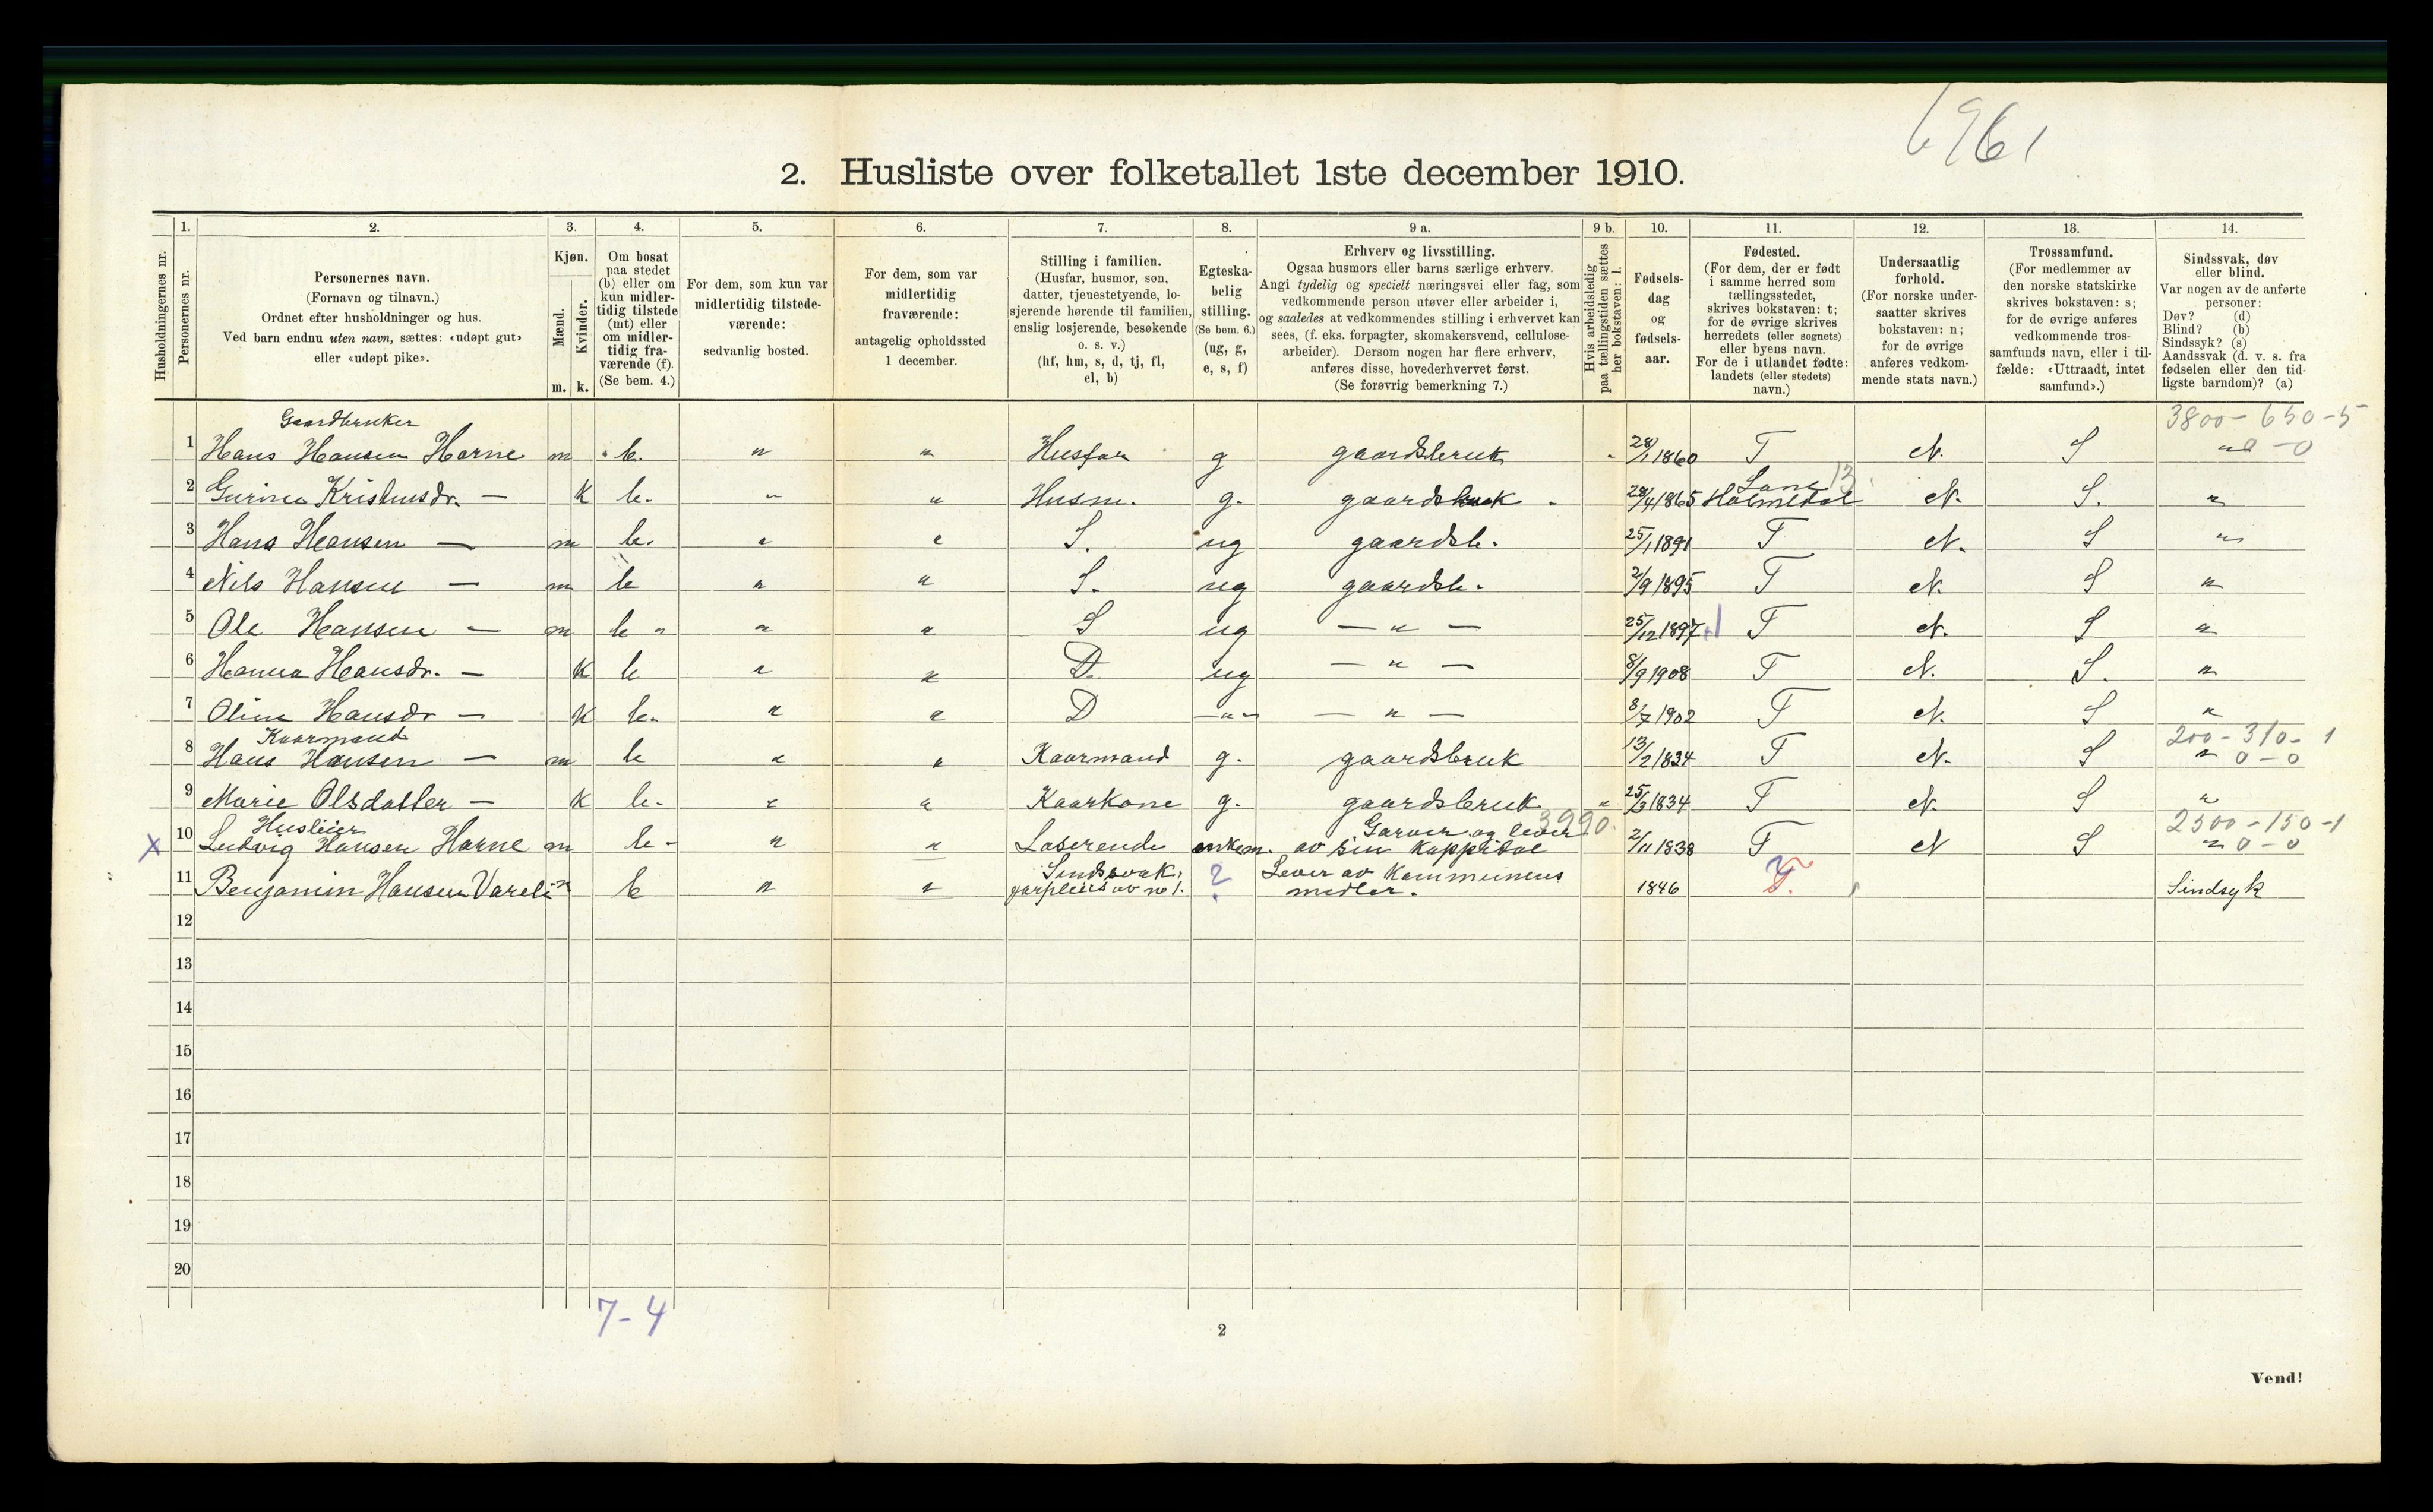 6961
2. Husliste over folketallet 1ste december 1910.
Husholdningernes nr.
1.
Personernes nr.
2.
Personernes navn.
(Fornavn og tilnavn.)
Ordnet efter husholdninger og hus.
Ved barn endnu uten navn, sættes: «udøpt gut»
eller «udøpt pike».
3.
Kjøn.
Mænd.
Kvinder.
m. k.
4.
Om bosat
paa stedet
(b) eller om
kun midler-
tidig tilstede
(mt) eller
om midler-
tidig fra-
værende (f).
(Se bem. 4.)
5.
For dem, som kun var
midlertidig tilstede-
værende:
sedvanlig bosted.
6.
For dem, som var
midlertidig
fraværende:
antagelig opholdssted
1 december.
7.
Stilling i familien.
(Husfar, husmor, søn,
datter, tjenestetyende, lo-
sjerende hørende til familien,
enslig losjerende, besøkende
o. s. v.)
(hf, hm, s, d, tj, fl,
el, b)
8.
Egteska-
belig
stilling.
(Se bem. 6.)
(ug, g,
e, s, f)
9 a.
Erhverv og livsstilling.
Ogsaa husmors eller barns særlige erhverv.
Angi tydelig og specielt næringsvei eller fag, som
vedkommende person utøver eller arbeider i,
og saaledes at vedkommendes stilling i erhvervet kan
sees, (f. eks. forpagter, skomakersvend, cellulose-
arbeider). Dersom nogen har flere erhverv,
anføres disse, hovederhvervet først.
(Se forøvrig bemerkning 7.)
9 b.
Hvis arbeidsledig
paa tællingstiden sættes
her bokstaven: l.
10.
Fødsels-
dag
og
fødsels-
aar.
11.
Fødested.
(For dem, der er født
i samme herred som
tællingsstedet,
skrives bokstaven: t;
for de øvrige skrives
herredets (eller sognets)
eller byens navn.
For de i utlandet fødte:
landets (eller stedets)
navn.)
12.
Undersaatlig
forhold.
(For norske under-
saatter skrives
bokstaven: n;
for de øvrige
anføres vedkom-
mende stats navn.)
13.
Trossamfund.
(For medlemmer av
den norske statskirke
skrives bokstaven: s;
for de øvrige anføres
vedkommende tros-
samfunds navn, eller i til-
fælde: «Uttraadt, intet
samfund».)
14.
Sindssvak, døv
eller blind.
Var nogen av de anførte
personer:
Døv? (d)
Blind? (b)
Sindssyk? (s)
Aandssvak (d. v. s. fra
fødselen eller den tid-
ligste barndom)? (a)
Gaardbruker 3800 - 650 - 5
1 Hans Hansen Horne m b. " " Husfar g gaardsbruk 28/1 1860 T N. S - 0
2 Gurine Kristensdr. — K b. " " Husm. g. gaardsbruk 28/4 1865 Holmedal 13 N. S. "
3 Hans Hansen — m b. " " S. ug gaardsb. 25/1 1891 T N. S "
4 Nils Hansen — m b " " S. ug gaardsb. 2/9 1895 T N. S "
5 Ole Hansen — m b " " S ug — " — 25/12 1897 T N. S "
6 Hanna Hansdr. — K b " " D. ug — " — 8/9 1908 T N. S. "
7 Oline Hansdr — K b. " " D — " — — " — 8/7 1902 T N. S "
Kaarmand 200 - 310 - 1
8 Hans Hansen — m b " " Kaarmand g. gaardsbruk 13/2 1834 T N. S " 0 - 0
9 Marie Olsdatter — K b. " " Kaarkone g. gaardsbruk " 25/3 1834 T N. S "
Husleier Garver og lever 3990. 2500 - 150 - 1
X 10 Ludvig Hansen Horne m b - " " Loserende enkem. av sin Kappital 2/11 1838 T N S " 0 - 0
Sindssvak, Lever av Kommunens
11 Benjamin Hansen b " " forpleies av no 1. ? midler. 1846 T. Sindsyk
12
13
14
15
16
17
18
19
20
7 - 4
2
Vend!